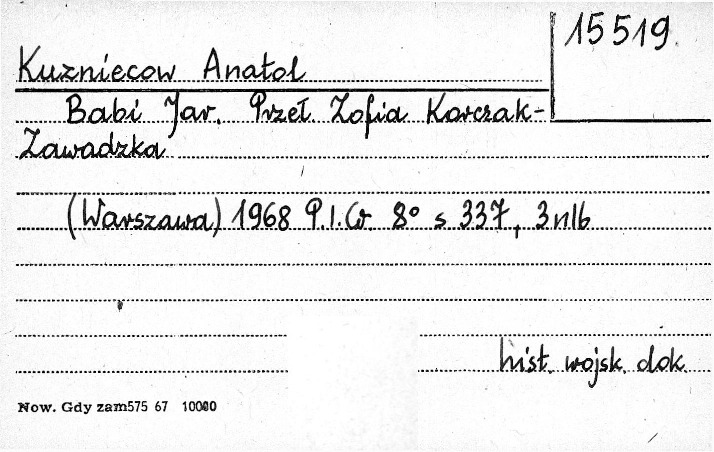 15519
Kuzniecow Anatol
Babi Jar. Przeł. Zofia Korczak-
Zawadzka
(Warszawa) 1968 P.I.W. 8° s 337, 3nlb
hist. wojsk. dok
Now. Gdy zam575 67 10000